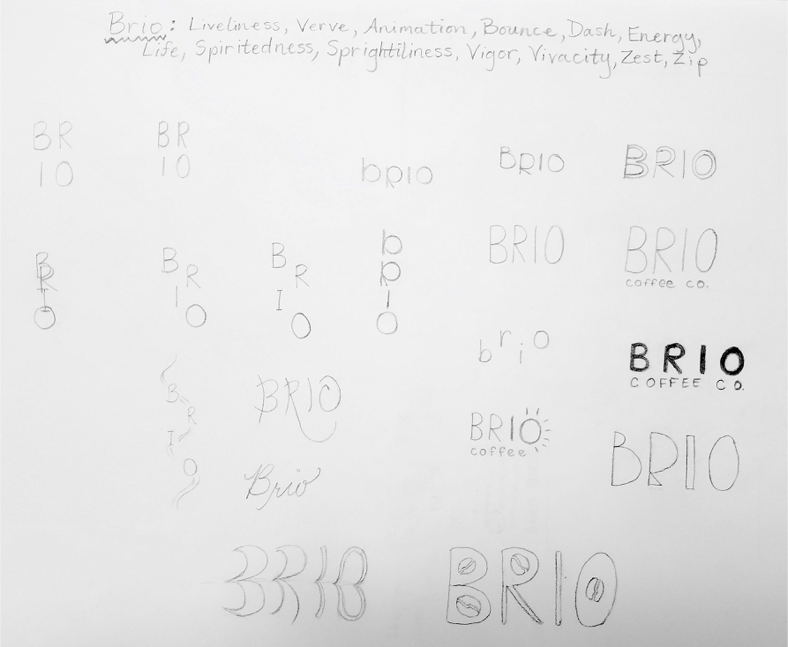 Brio: Liveliness, Verve, Animation, Bounce, Dash, Energy,
Life, Spiritedness, Sprightiliness, Vigor, Vivacity, Zest, Zip
BR
IO
BR
IO
brio
BRIO
BRIO
B
R
I
O
B
R
I
O
B
R
I
O
b
r
i
o
BRIO
BRIO
coffee co.
brio
BRIO
COFFEE CO.
B
R
I
O
BRIO
BRIO
coffee
BRIO
Brio
BRIO
BRIO